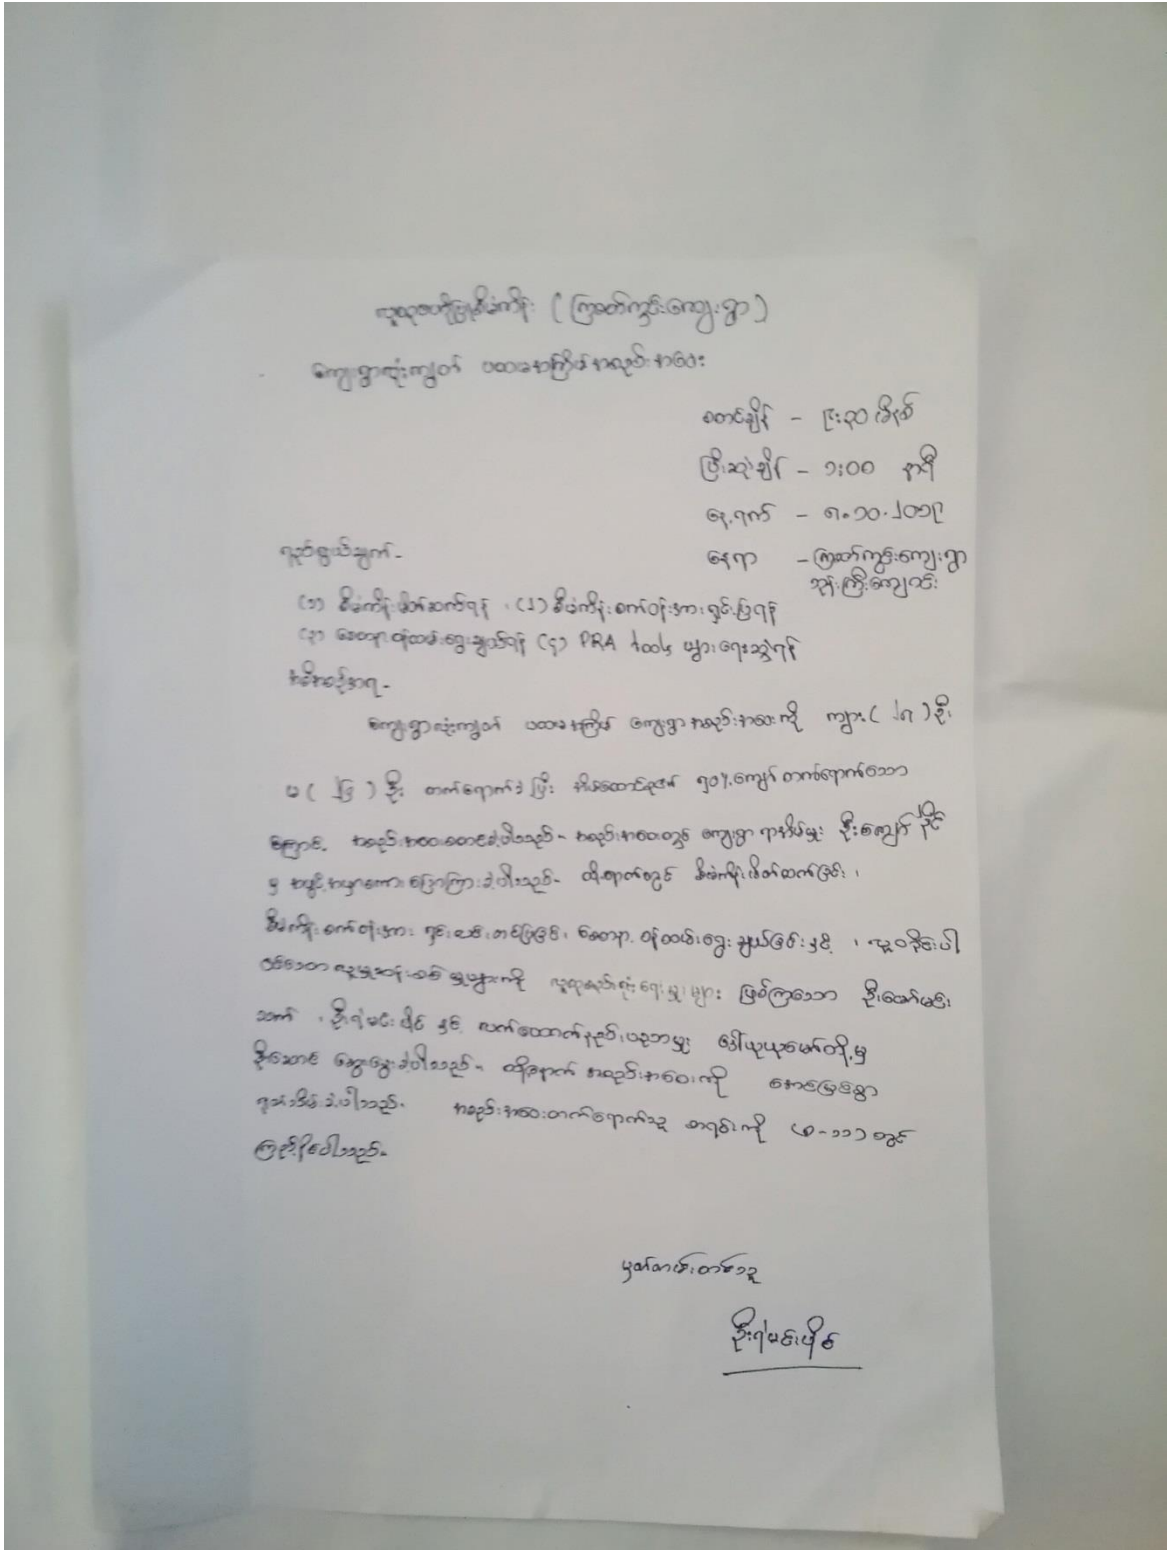 လူထုဗဟိုပြုစီမံကိန်း (ကြခတ်ကွင်းကျေးရွာ)
ကျေးရွာလုံးကျွတ် ပထမအကြိမ်အစည်းအဝေး
စတင်ချိန် - ၉:၃၀ မိနစ်
ပြီးဆုံးချိန် - ၁:၀၀ နာရီ
နေ့ရက် - ၈.၁၀.၂၀၁၉
ရည်ရွယ်ချက် -
နေရာ - ကြခတ်ကွင်းကျေးရွာ
ဘုန်းကြီးကျောင်း
(၁) စီမံကိန်းမိတ်ဆက်ရန် ၊ (၂) စီမံကိန်းစက်ဝန်းအား ရှင်းပြရန်
(၃) စေတနာ့ဝန်ထမ်းရွေးချယ်ရန် (၄) PRA tools များရေးဆွဲရန်
အစီအစဉ်အရ -
ကျေးရွာလုံးကျွတ် ပထမအကြိမ် ကျေးရွာအစည်းအဝေးကို ကျား( ၂၈ )ဦး
မ( ၂၄ )ဦး တက်ရောက်ခဲ့ပြီး အိမ်ထောင်စု၏ ၅၀%ကျော် တက်ရောက်သော
ကြောင့် အစည်းအဝေးစတင်ခဲ့ပါသည်။ အစည်းအဝေးတွင် ကျေးရွာ ရာအိမ်မှူး ဦးကျော်နိုင်
မှ အဖွင့်အမှာစကားပြောကြားခဲ့ပါသည်။ ထို့နောက်တွင် စီမံကိန်းမိတ်ဆက်ခြင်း ၊
စီမံကိန်းစက်ဝန်းအား ရှင်းလင်းတင်ပြခြင်း၊ စေတနာ့ ဝန်ထမ်းရွေးချယ်ခြင်းနှင့် ၊ လူဝင်ဆိုင်းပါ
လူမှုဆန်းစစ်မှုများကို လူထုစည်းရုံးရေးမှူးများ ဖြစ်ကြသော ဦးဇော်မင်း
သက် ၊ ဦးရဲမင်းပိုင် နှင့် လက်ထောက်နည်းပညာမှူး ဒေါ်ယုယုမော်တို့မှ
ဦးဆောင် ဆွေးနွေးခဲ့ပါသည်။ ထို့နောက် အစည်းအဝေးကို အောင်မြင်စွာ
ရုပ်သိမ်းခဲ့ပါသည်။ အစည်းအဝေးတက်ရောက်သူ စာရင်းကို (စ-၁၁) တွင်
ကြည့်နိုင်ပါသည်။
မှတ်တမ်းတင်သူ
ဦးရဲမင်းပိုင်